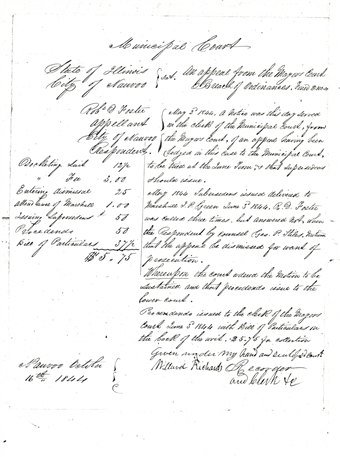 Municipal Court
State of Illinois
City of Nauvoo
sct. An appeal from the Mayors Court
Breach of Ordinances
Robt. D. Foster
appellant
City of Nauvoo
Respondent
May 3. 1844. A notice was this day served
on the clerk of the Municipal Court, from
the Mayors Court, of an appeal having been
lodged in this case to the Municipal Court,
to be tried at the June Term, & that supersedeas
should issue.
Docketing suit 12½
" Fee 3.00
Entering dismissal 25
attendance of Marshall 1.00
Issuing Supersedeas 50
Procedendo 50
Bill of Particulars 37½
$5.75
May 1844 Subpoenas issued delivered to
Marshall J. P. Green June 3d. 1844. R. D. Foster
was called three times, but answered not, when
the Respondent by counsel Geo. P. Stiles, motion
that the appeal be dismissed for want of
prosecution.
Whereupon the court ordered the motion to be
sustained and that procedendo issue to the
lower court.
Procedendo issued to the clerk of the Mayors
Court June 3d. 1844 with Bill of Particulars on
the back of the writ. $5.75 for collection
Given under my hand and seal of Court
Nauvoo October
16th 1844
Willard Richards Recorder
and Clerk &c